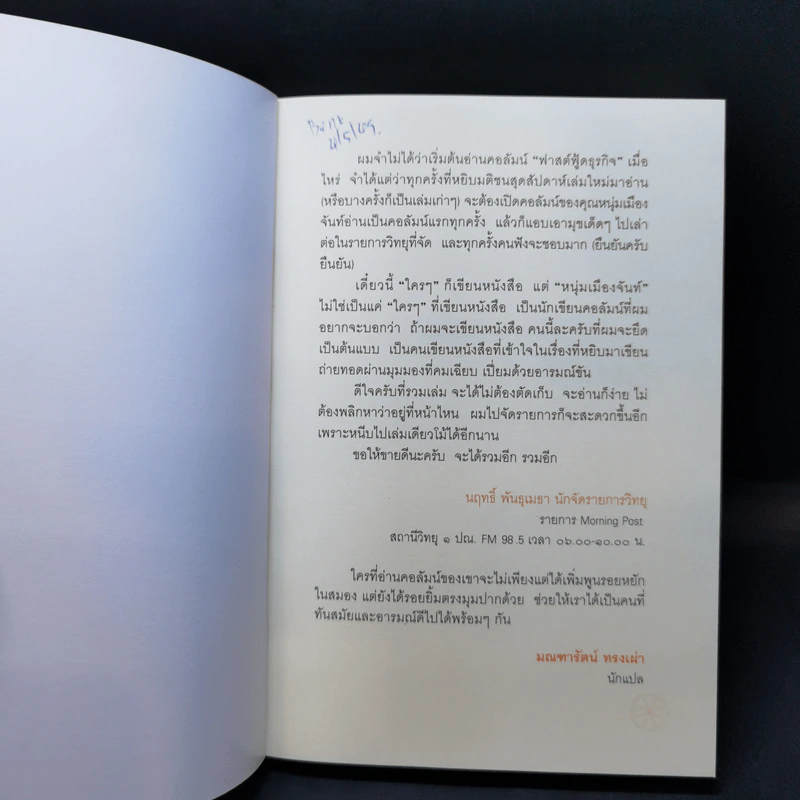 ผมจำไม่ได้ว่าเริ่มต้นอ่านคอลัมน์ “ฟาสต์ฟู้ดธุรกิจ” เมื่อ
ไหร่ จำได้แต่ว่าทุกครั้งที่หยิบมติชนสุดสัปดาห์เล่มใหม่มาอ่าน
(หรือบางครั้งก็เป็นเล่มเก่าๆ) จะต้องเปิดคอลัมน์ของคุณหนุ่มเมือง
จันท์อ่านเป็นคอลัมน์แรกทุกครั้ง แล้วก็แอบเอามุขเด็ดๆ ไปเล่า
ต่อในรายการวิทยุที่จัด และทุกครั้งคนฟังจะชอบมาก (ยืนยันครับ
ยืนยัน)
เดี๋ยวนี้ “ใครๆ” ก็เขียนหนังสือ แต่ “หนุ่มเมืองจันท์”
ไม่ใช่เป็นแค่ “ใครๆ” ที่เขียนหนังสือ เป็นนักเขียนคอลัมน์ที่ผม
อยากจะบอกว่า ถ้าผมจะเขียนหนังสือ คนนี้ละครับที่ผมจะยึด
เป็นต้นแบบ เป็นคนเขียนหนังสือที่เข้าใจในเรื่องที่หยิบมาเขียน
ถ่ายทอดผ่านมุมมองที่คมเฉียบ เปี่ยมด้วยอารมณ์ขัน
ดีใจครับที่รวมเล่ม จะได้ไม่ต้องตัดเก็บ จะอ่านก็ง่าย ไม่
ต้องพลิกหาว่าอยู่ที่หน้าไหน ผมไปจัดรายการก็จะสะดวกขึ้นอีก
เพราะหนีบไปเล่มเดียวโม้ได้อีกนาน
ขอให้ขายดีนะครับ จะได้รวมอีก รวมอีก
นฤทธิ์ พันธุเมธา นักจัดรายการวิทยุ
รายการ Morning Post
สถานีวิทยุ ๑ ปณ. FM 98.5 เวลา ๐๖.๐๐-๑๐.๐๐ น.
ใครที่อ่านคอลัมน์ของเขาจะไม่เพียงแต่ได้เพิ่มพูนรอยหยัก
ในสมอง แต่ยังได้รอยยิ้มตรงมุมปากด้วย ช่วยให้เราได้เป็นคนที่
ทันสมัยและอารมณ์ดีไปได้พร้อมๆ กัน
มณฑารัตน์ ทรงเผ่า
นักแปล